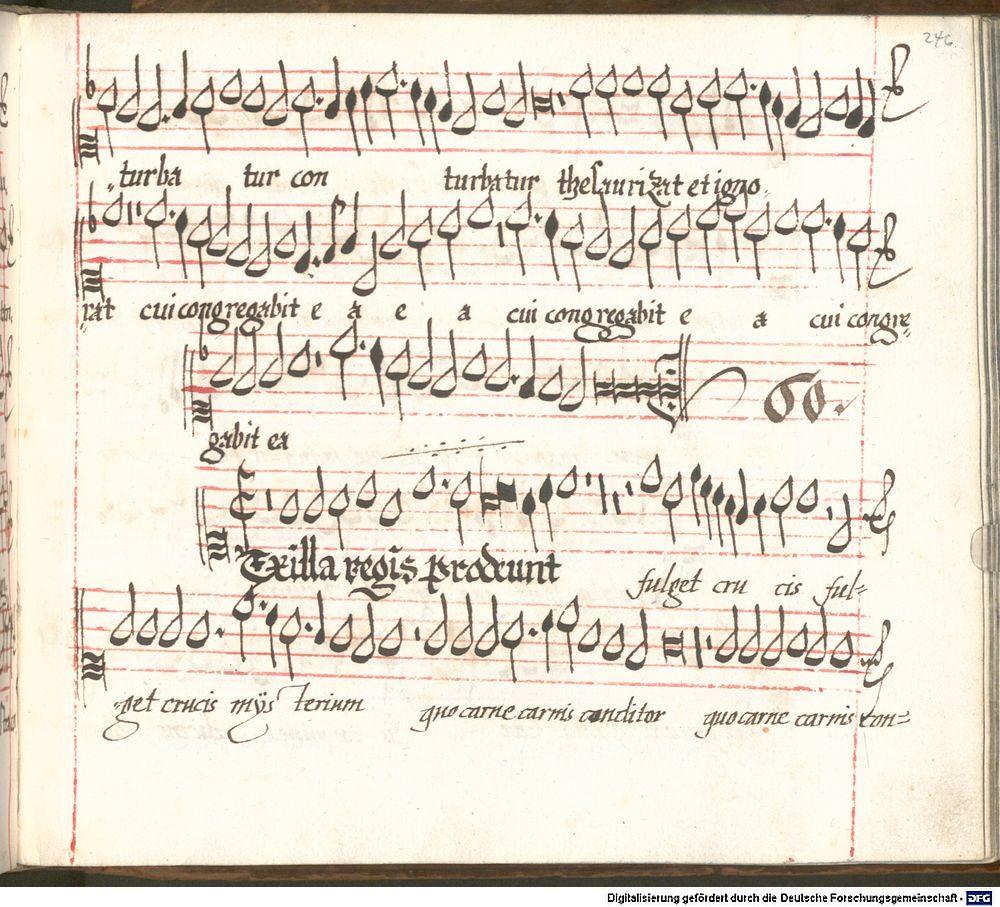 246.
turba tur con turbatur thesaurizat et igno
rat cui congregabit e a e a cui congregabit e a cui congre
gabit ea
60.
Vexilla regis prodeunt fulget cru cis ful
get crucis mÿs terium quo carne carnis conditor quo carne carnis con
Digitalisierung gefördert durch die Deutsche Forschungsgemeinschaft - DFG